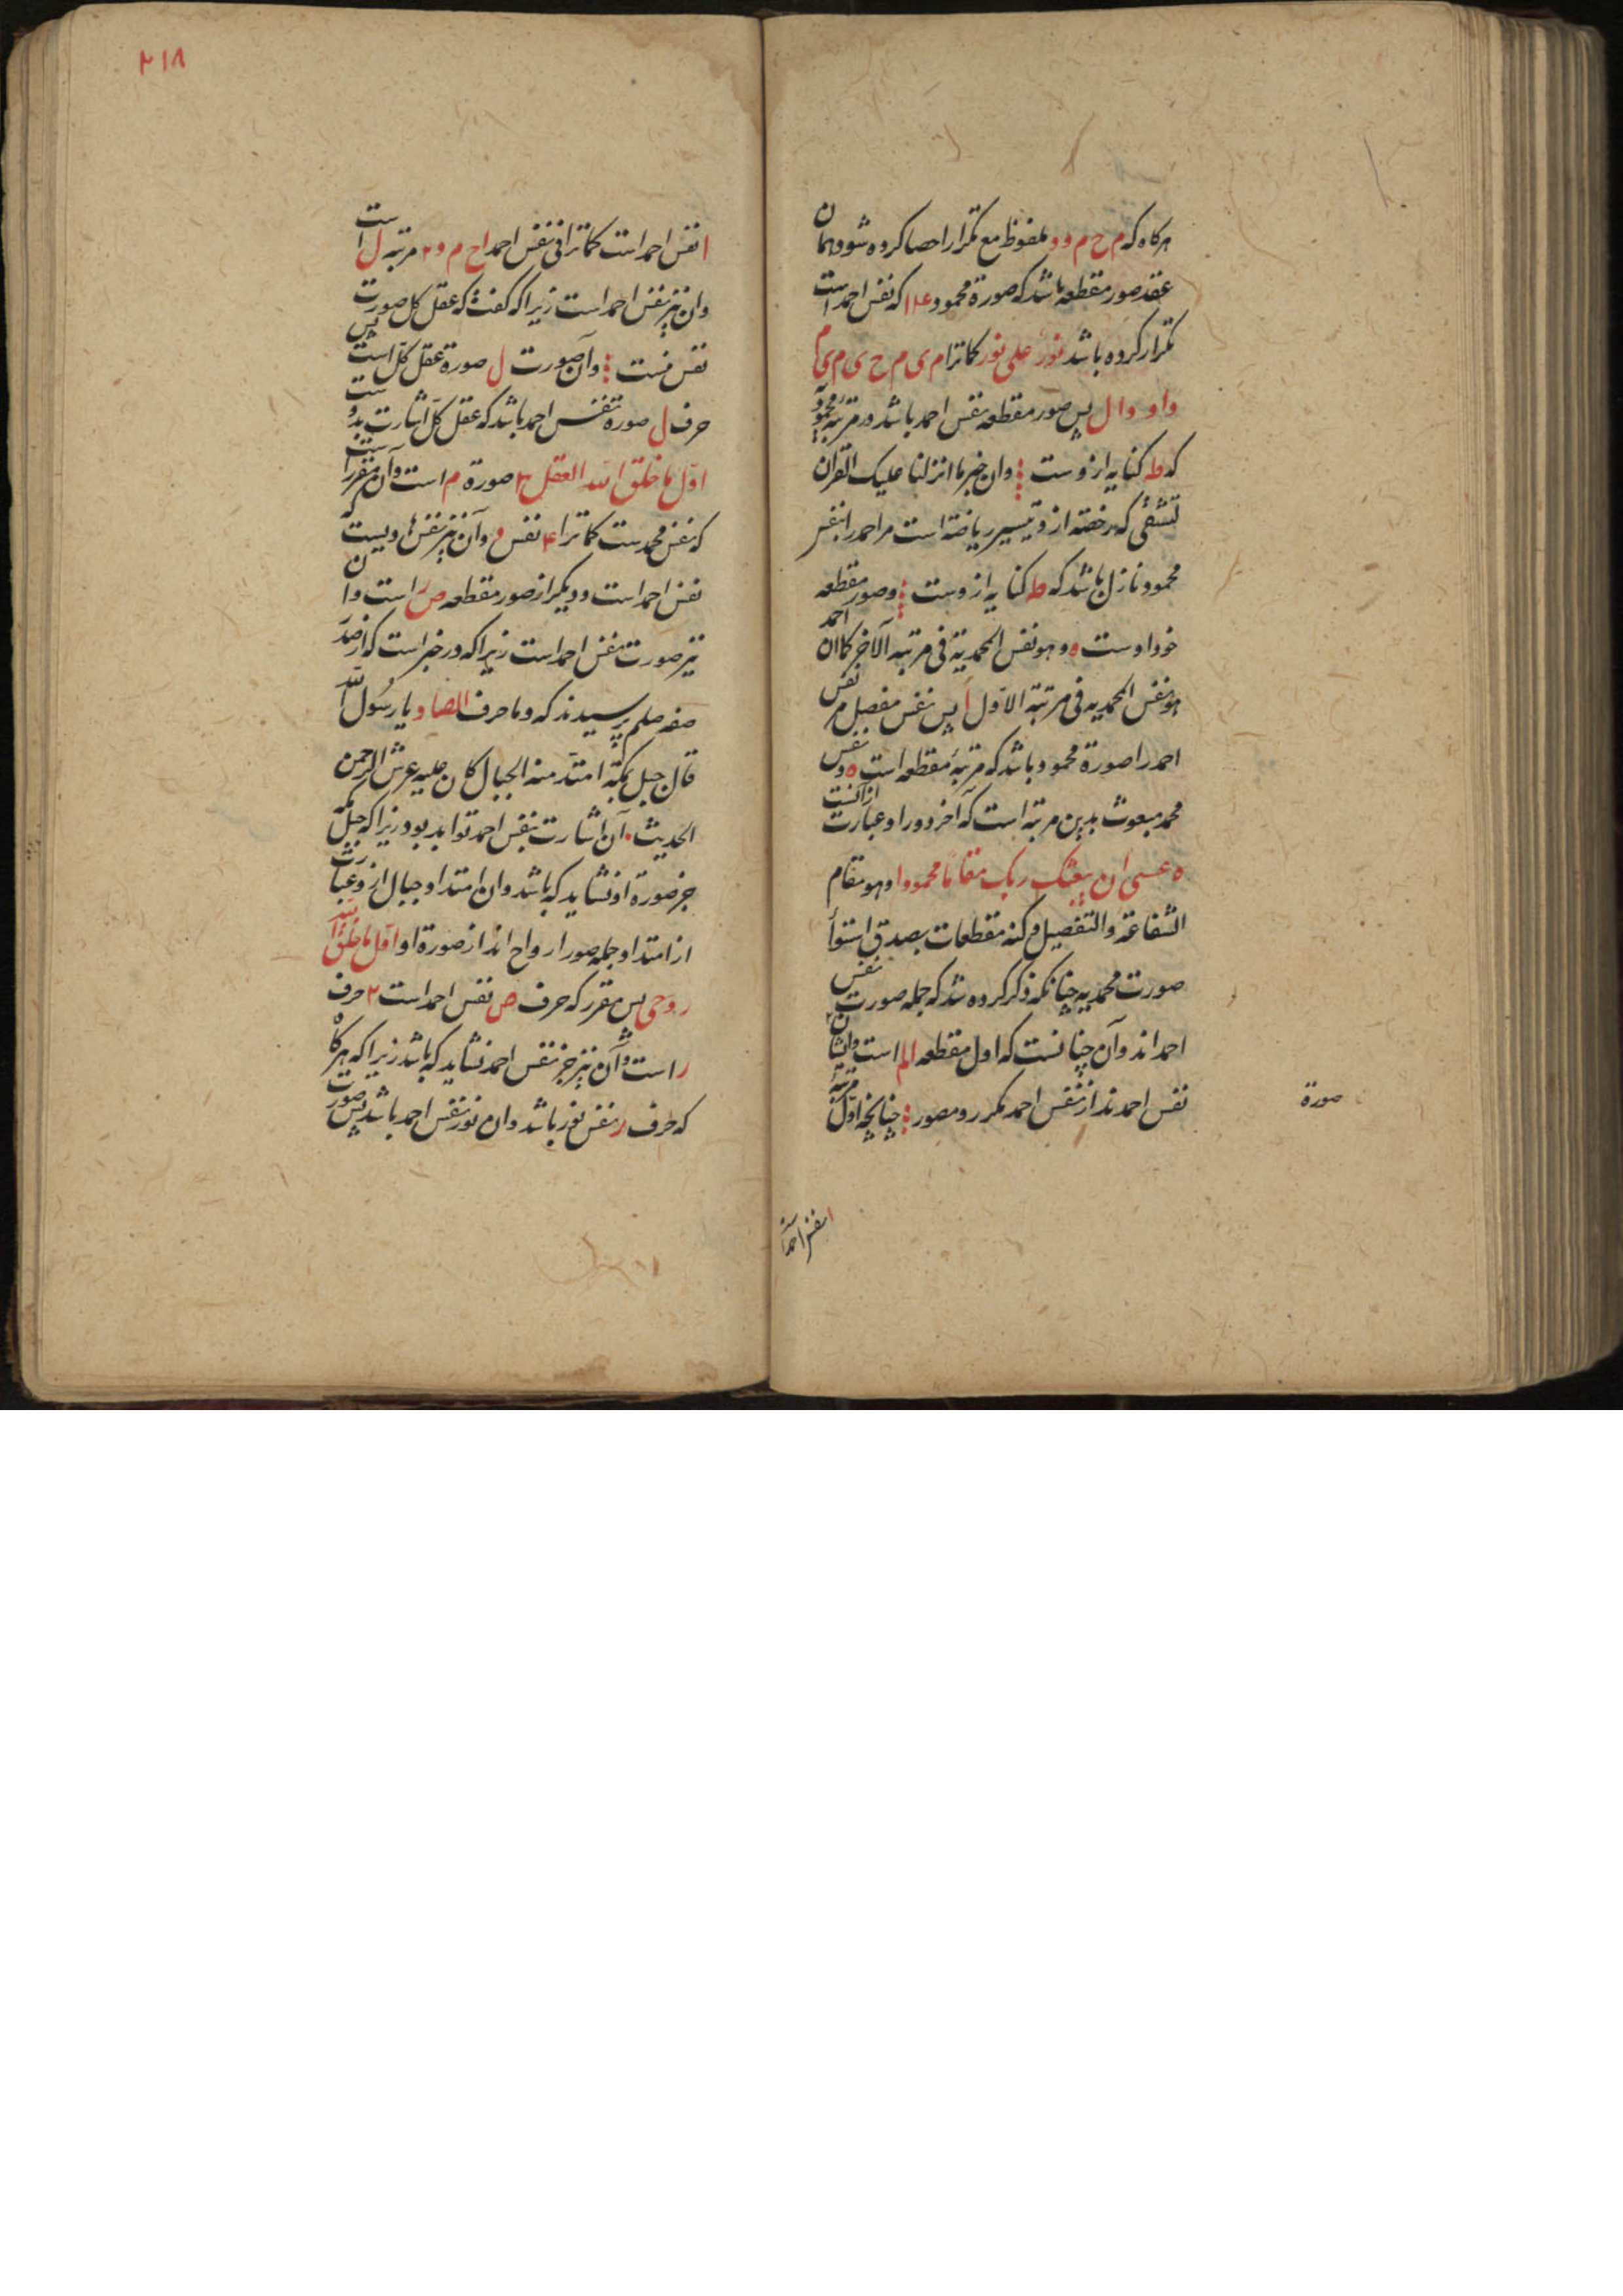 هرکاه که م ح م و د ملفوظ مع تکرار احصا کرده شود همان
عقد صور مقطعه باشد که صورة محمود که نفس احمد است
تکرار کرده باشد نور علی نور کماترا م ی م ح ی م ی م
واو دال پس صور مقطعه نفس احمد باشد در مرتبه محمود
که ط کنایه ازوست وان خبر ما انزلنا علیک القران
لتشقی که رخصة از و تیسیر یافته است مر احمد را نفس
محمود نازل باشد که ط کنایه ازوست وصور مقطعه
خود اوست ه وهو نفس المحمدیة فی مرتبة الآخر کما ان احمد
هو نفس المحمدیه فی مرتبة الاول پس نفس مفصل مر نفس
احمد را صورة محمود باشد که مرتبهٔ مقطعه است ه ونفس
محمد مبعوث بدین مرتبه است که آخر دور او عبارت ازانست
ه عسی ان یبعثک ربک مقاما محمودا وهو مقام
الشفاعة والتفصیل وکنه مقطعات بصدق استوا
صورت محمدیه چنانکه ذکر کرده شد که جمله صورت نفس
احمد اند وآن چنانست که اول مقطعه الم است وایشان
نفس احمد ند از نفس احمد مکرر ومصور چنانچه اول مرتبهٔ
صورة
ا نفس احمد
۲۱۸
ا نفس احمد است کماترا فی نفس احمد ا ح م د ۲ مرتبه ل است
وان نیز نفس احمد است زیرا که کفت که عقل کل صورت
نفس منست وآن صورت ل صورة عقل کل است پس
حرف ل صورة نفس احمد باشد که عقل کل اشارت بدوست
اول ما خلق الله العقل ۳ صورة م است وآن مقررست
که نفس محمدست کماترا ۴ نفس و وآن نیز نفس ویست که
نفس احمد است ودیکر از صور مقطعه ص است وان
نیز صورت نفس احمد است زیرا که در خبر است که از حضرت
صلعم پرسیدند که وما حرف الصاد یا رسول الله
قال جبل بمکة امتد منه الجبال کان علیه عرش الرحمن
الحدیث آن اشارت بنفس احمد تواند بود زیرا که جبل مکه
جز صورة او نشاید که باشد وان امتداد جبال ازو عبارت
از امتداد جمله صور ارواح اند از صورة او اول ما خلق الله
روحی پس مقرر که حرف ص نفس احمد است ۲ حرف
ر است وآن نیز جز نفس احمد نشاید که باشد زیرا که هرکاه
که حرف ر نفس نور باشد وان نور نفس احمد باشد پس صورت